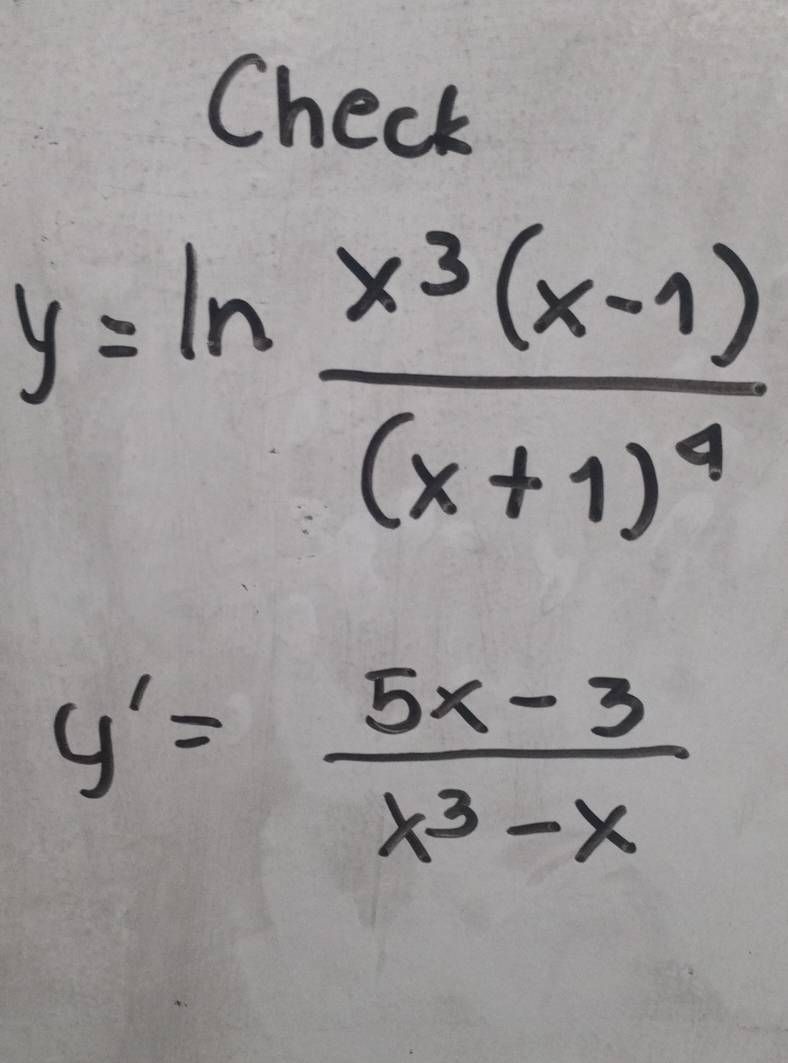 Check
y = ln x³(x-1) / (x+1)⁴
y' = 5x-3 / x³-x